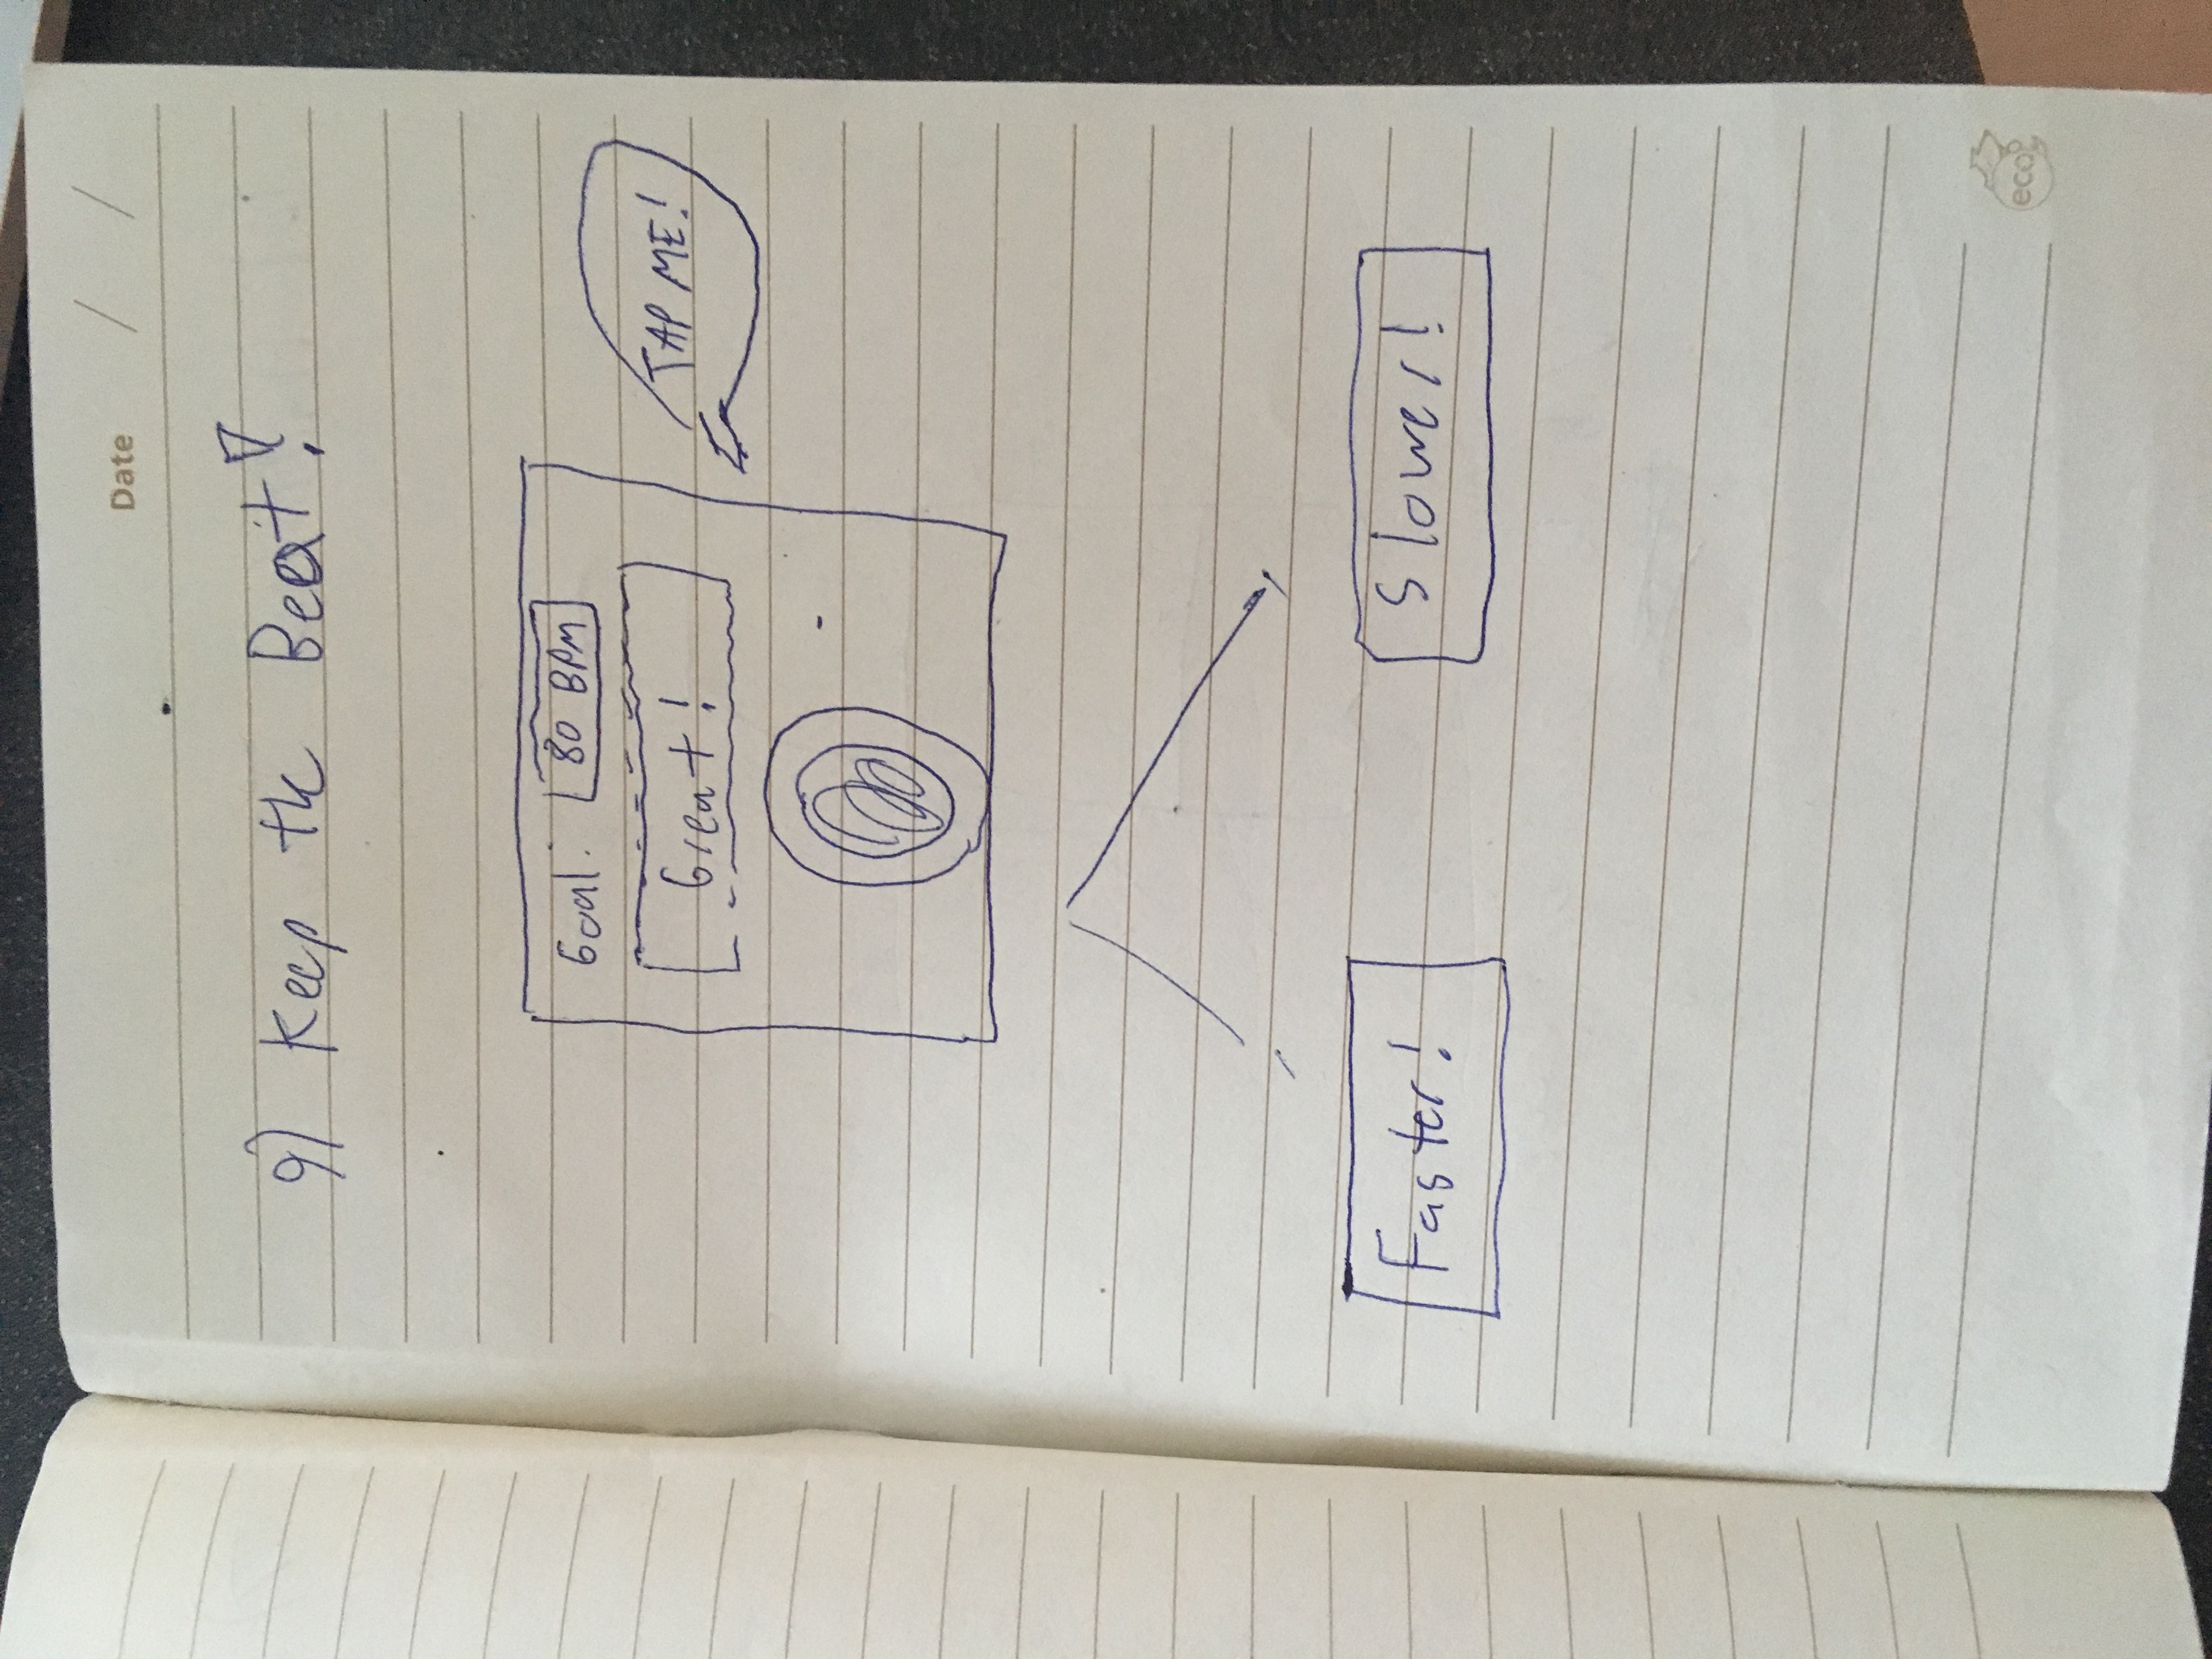 Date / /
9) Keep the Beat!
Goal: 80 BPM
Great!
TAP ME!
Faster!
Slower!
eco